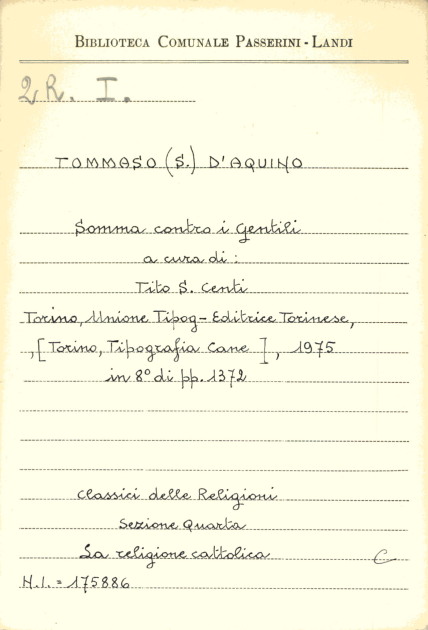 BIBLIOTECA COMUNALE PASSERINI - LANDI
2R. I.
TOMMASO (S.) D'AQUINO
Somma contro i Gentili
a cura di :
Tito S. Centi
Torino, Unione Tipog- Editrice Torinese,
,[Torino, Tipografia Cane ], 1975
in 8° di pp. 1372
Classici delle Religioni
Sezione Quarta
La religione cattolica C
N.I. = 175886